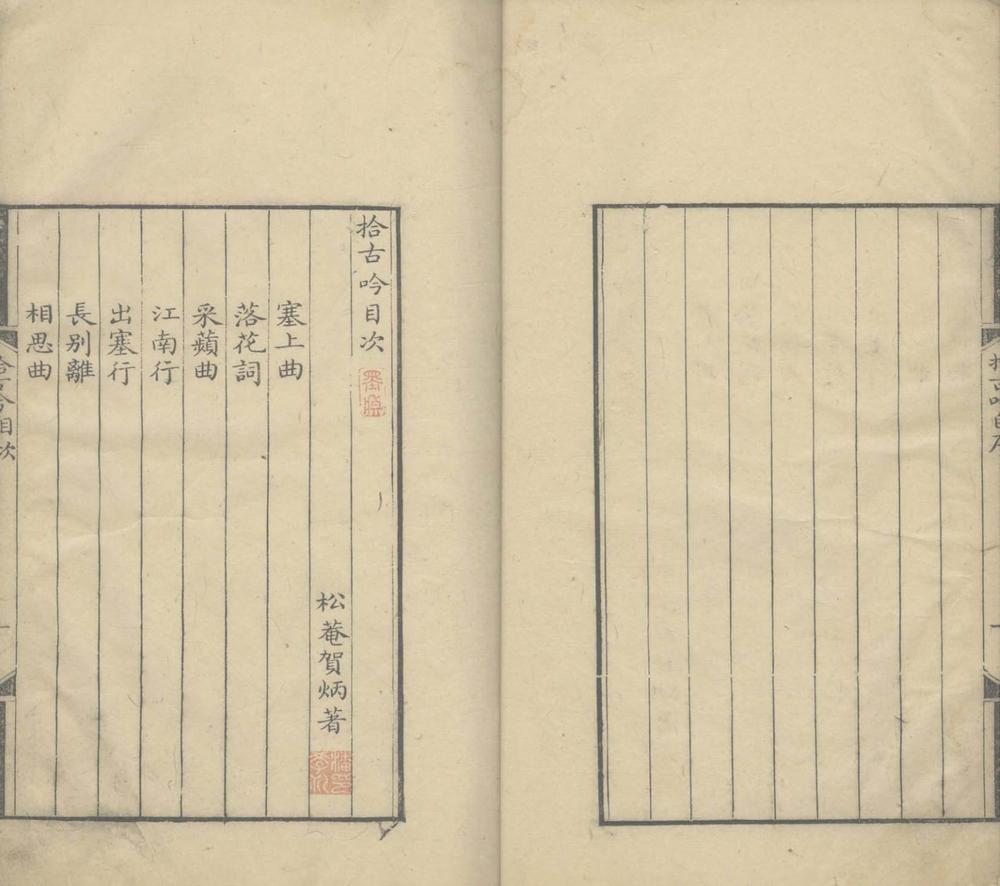 拾古吟目次
松菴賀炳著
塞上曲
落花詞
采蘋曲
江南行
出塞行
長别離
相思曲
拾古吟目次